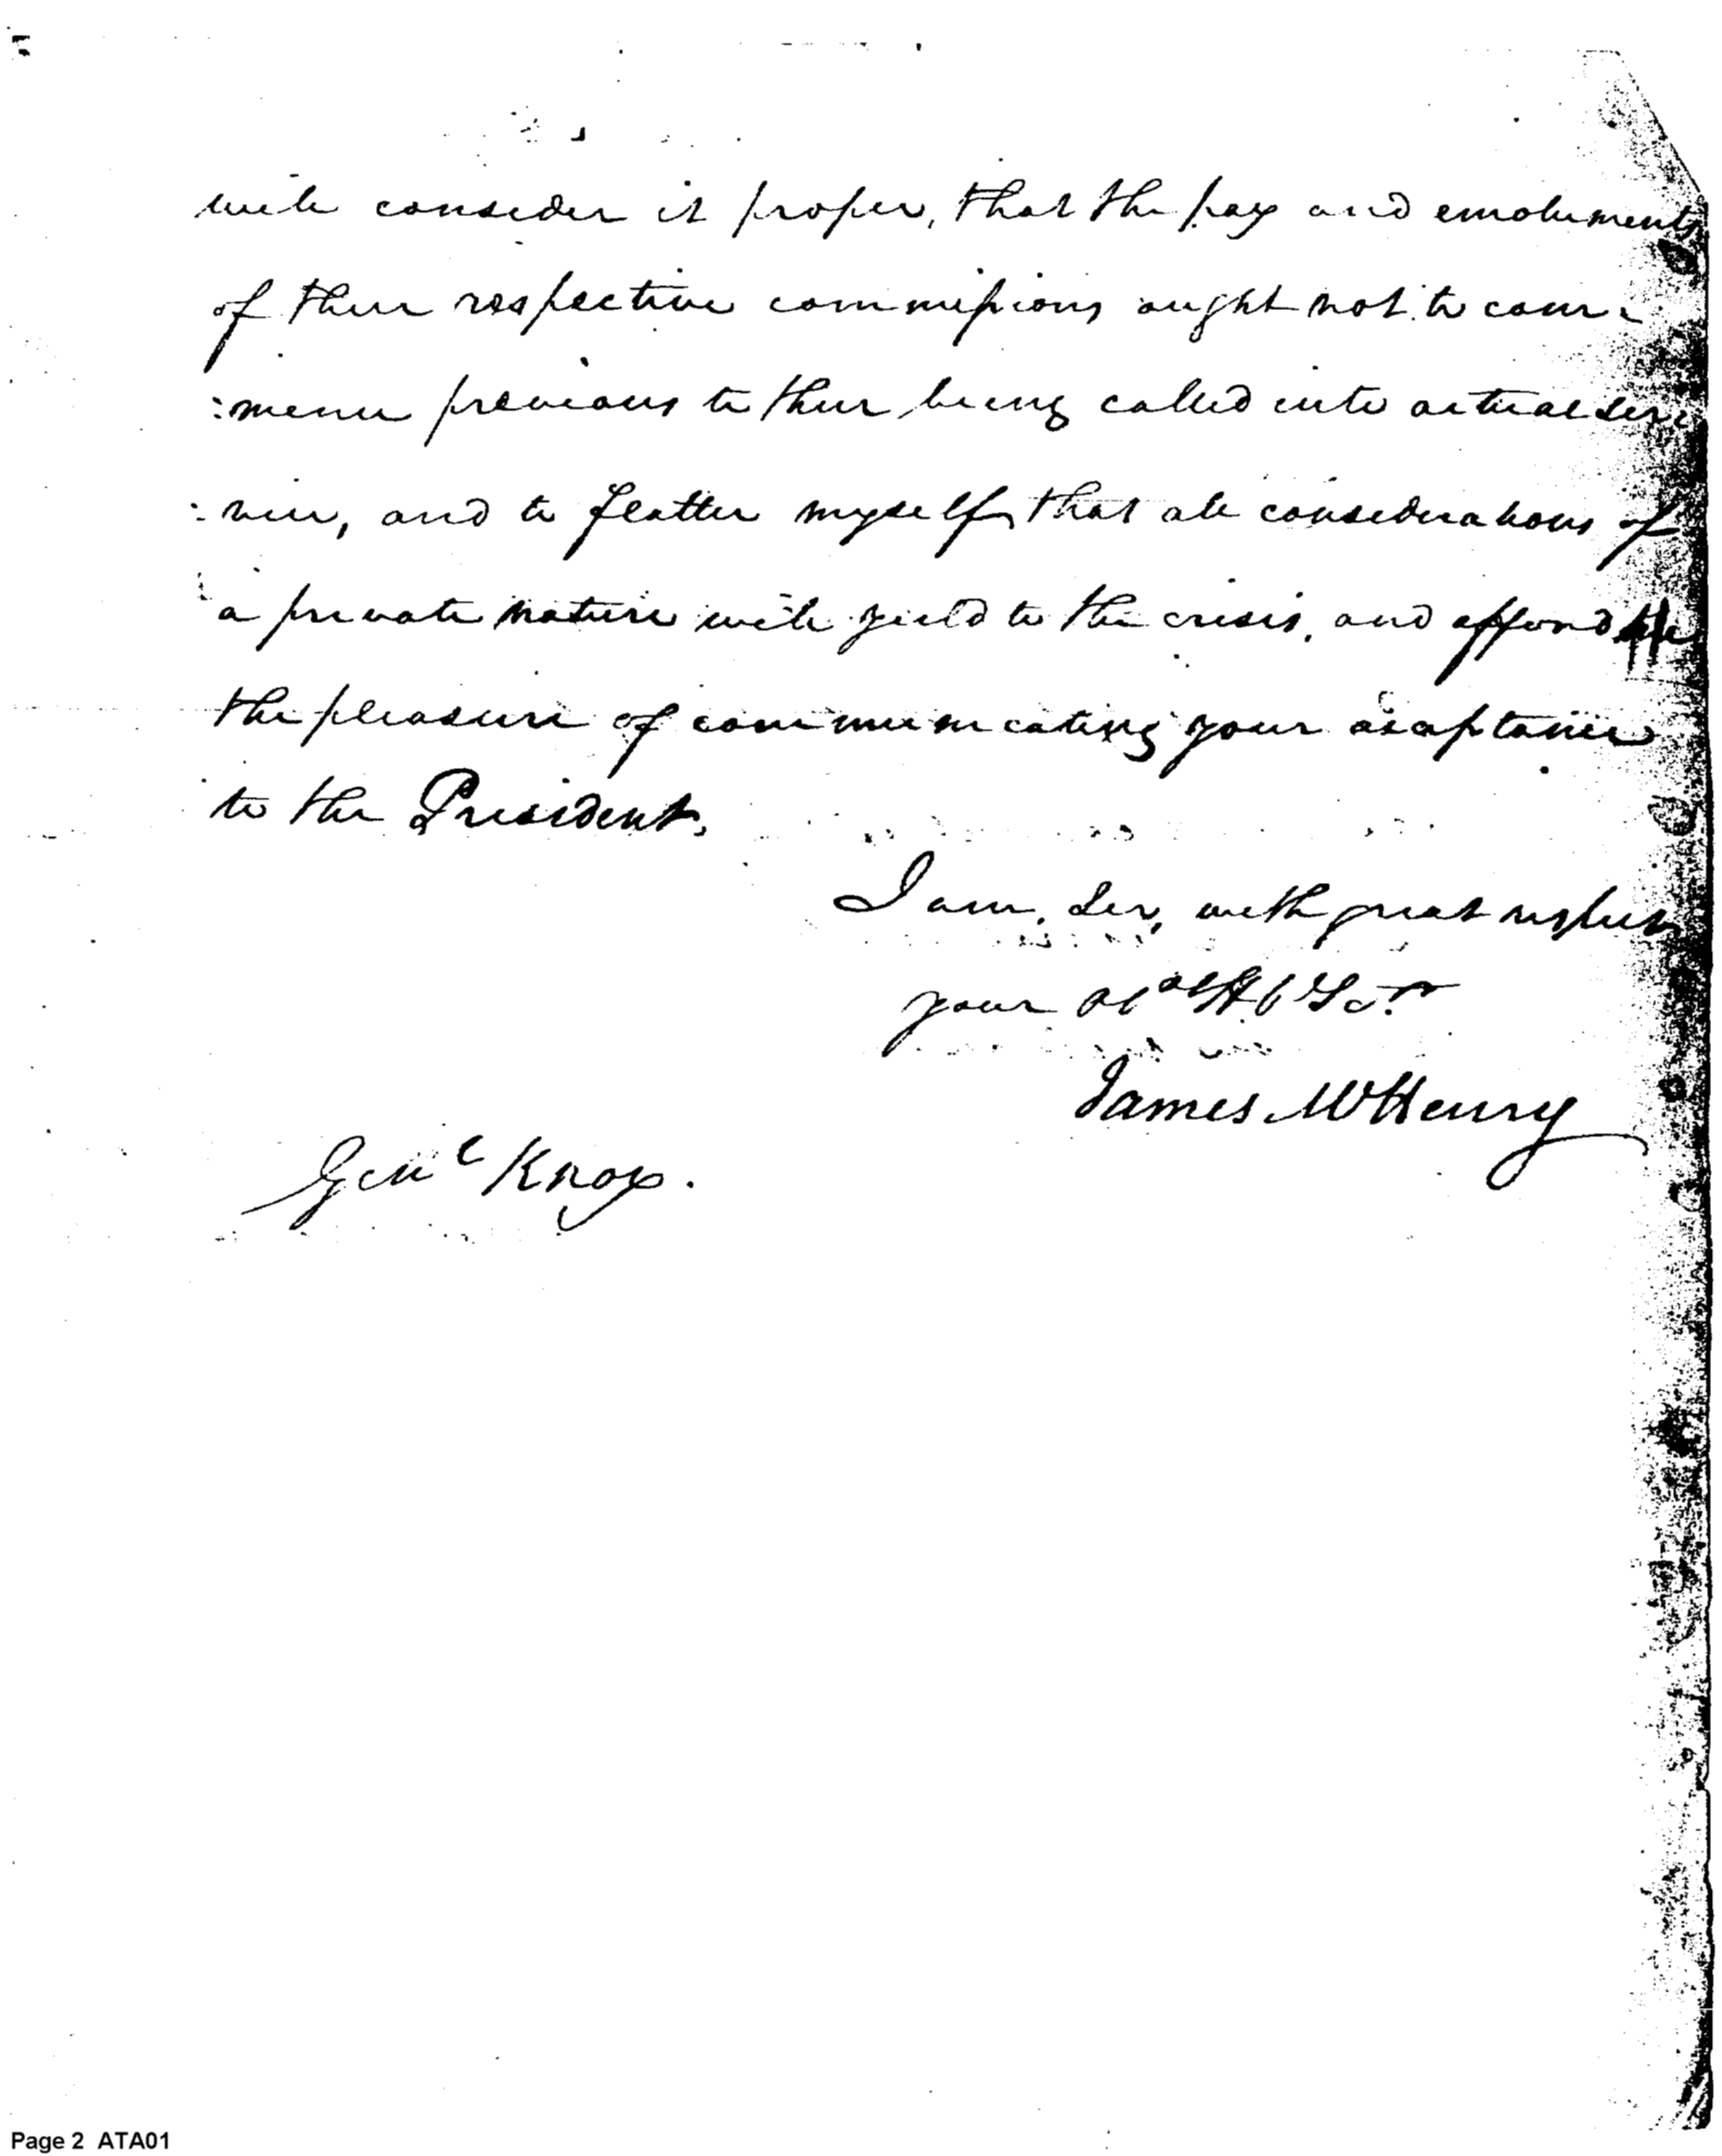 will consider it proper, that the pay and emoluments
of their respective commissions ought not to com-
:mence previous to their being called into actual ser:
:vice, and to flatter myself, that all considerations of
a private nature will yield to the crisis, and afford me
the pleasure of communicating your acceptance
to the President.
I am, Sir, with great respect
your Ob H
James McHenry
Genl Knox.
Page 2 ATA01